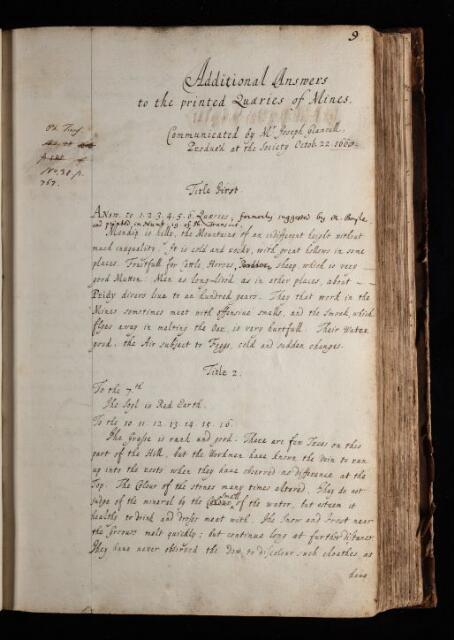 9
Additional Answers
to the printed Quaries of Mines.
Communicated by Mr Joseph Glanvill.
Produc'd at the Society Octob. 22.
Title first.
Answ. to 1. 2. 3. 4. 5. 6. Quaries, formerly suggested by Mr. Boyle
and printed in Numb. 19. of the Transact.
Mendip is hilly, the Mountains of an indifferent height without
much inequality. It is cold and rocky, with great hollows in some
places. Fruitfull for Cattle, Horses, sheep, which is very
good Mutton. Men as long-lived as in other places, about
Priddy divers live to an hundred years. They that work in the
Mines sometimes meet with offensive smells, and the Smoak, which
flyes away in melting the Oar, is very hurtfull. Their Water
good, the Air subject to Foggs, cold and sudden changes.
Title 2.
To the 7.th
The Soyl is Red Earth.
To the 10. 11. 12. 13. 14. 15. 16.
The Grasse is rank and good. There are few Trees on this
part of the Hill, but the Workmen have known the Vein to run
up into the roots when they have observed no difference at the
Top. The Colour of the stones many times altered. They do not
judge of the mineral by the smell of the water, but esteem it
healthy to drink and dresse meat with. The Snow and Frost near
the Grooves melt quickly; but continue long at further distance.
They have never observed the Dew to discolour such cloathes, as
have
Ph. Trans.
No. 28. p.
767.